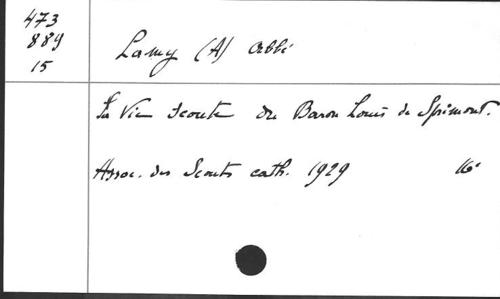 473
889
15
Lamy (A) Abbé
La Vie Scoute du Baron Louis de Sprimont.
Assoc. des Scouts cath. 1929 16°